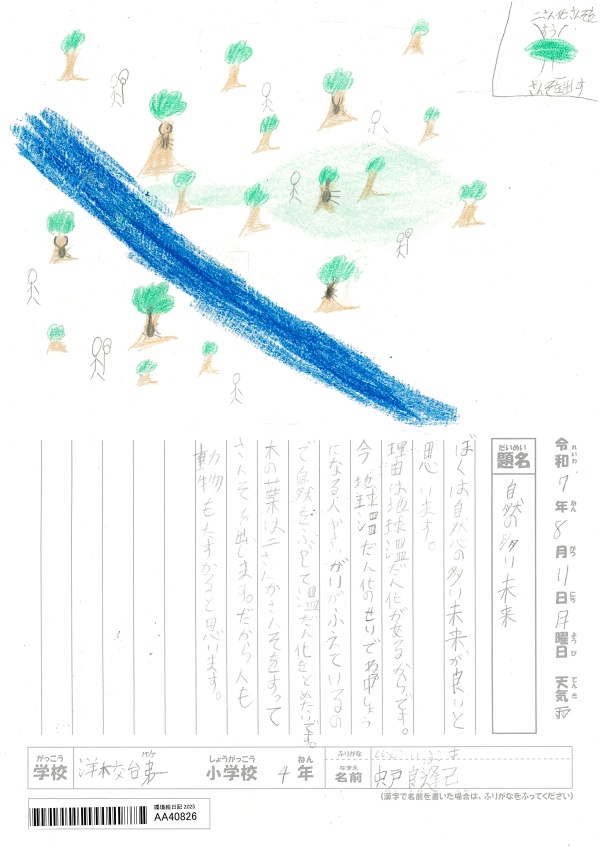 二さん化さんそを
すう
さんそを出す
令和7年8月11日月曜日 天気 雨
れいわ ねん がつ にち よう び てん き
だいめい
題名 自然の多い未来
ぼくは自然の多い未来が良いと
思います。
理由は地球温だん化があるからです。
今、地球温だん化のせいでねっ中しょう
になる人や、
がふえているの
で自然をふやして温だん化をとめたいです。
木の葉は二さんかさんそをすって
さんそを出します。だから人も
動物もたすかると思います。
がっこう
学校
しょうがっこう
小学校 4 ねん
年
ふりがな
なまえ
名前
(漢字で名前を書いた場合は、ふりがなをふってください)
環境絵日記 2025
AA40826